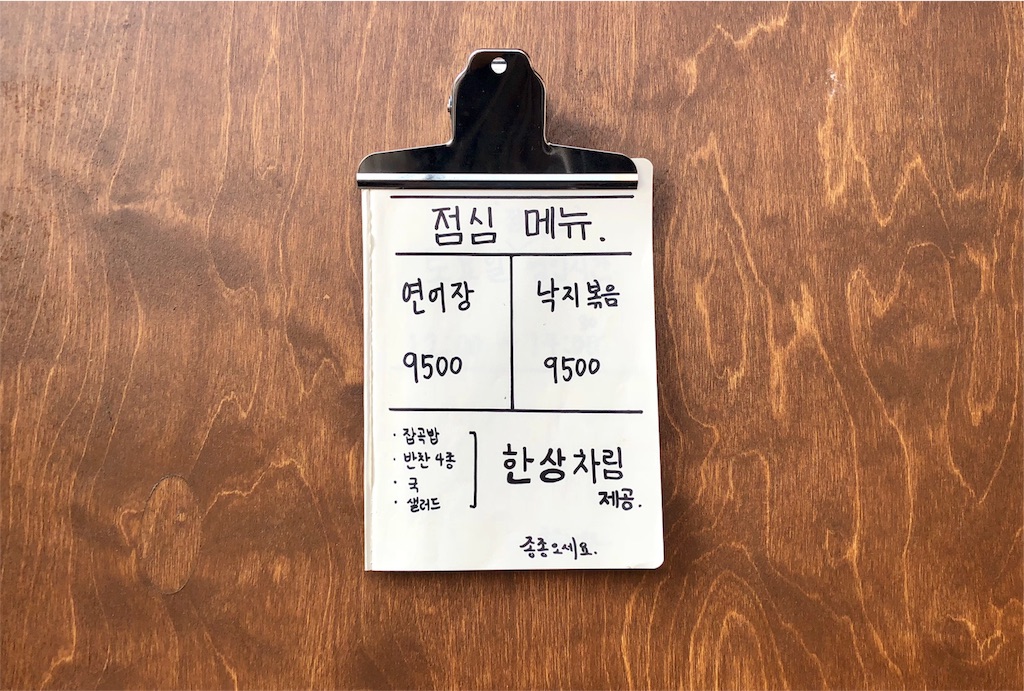 점심 메뉴.
연어장
9500
낙지볶음
9500
· 잡곡밥
· 반찬 4종
· 국
· 샐러드
한상차림
제공.
종종오세요.